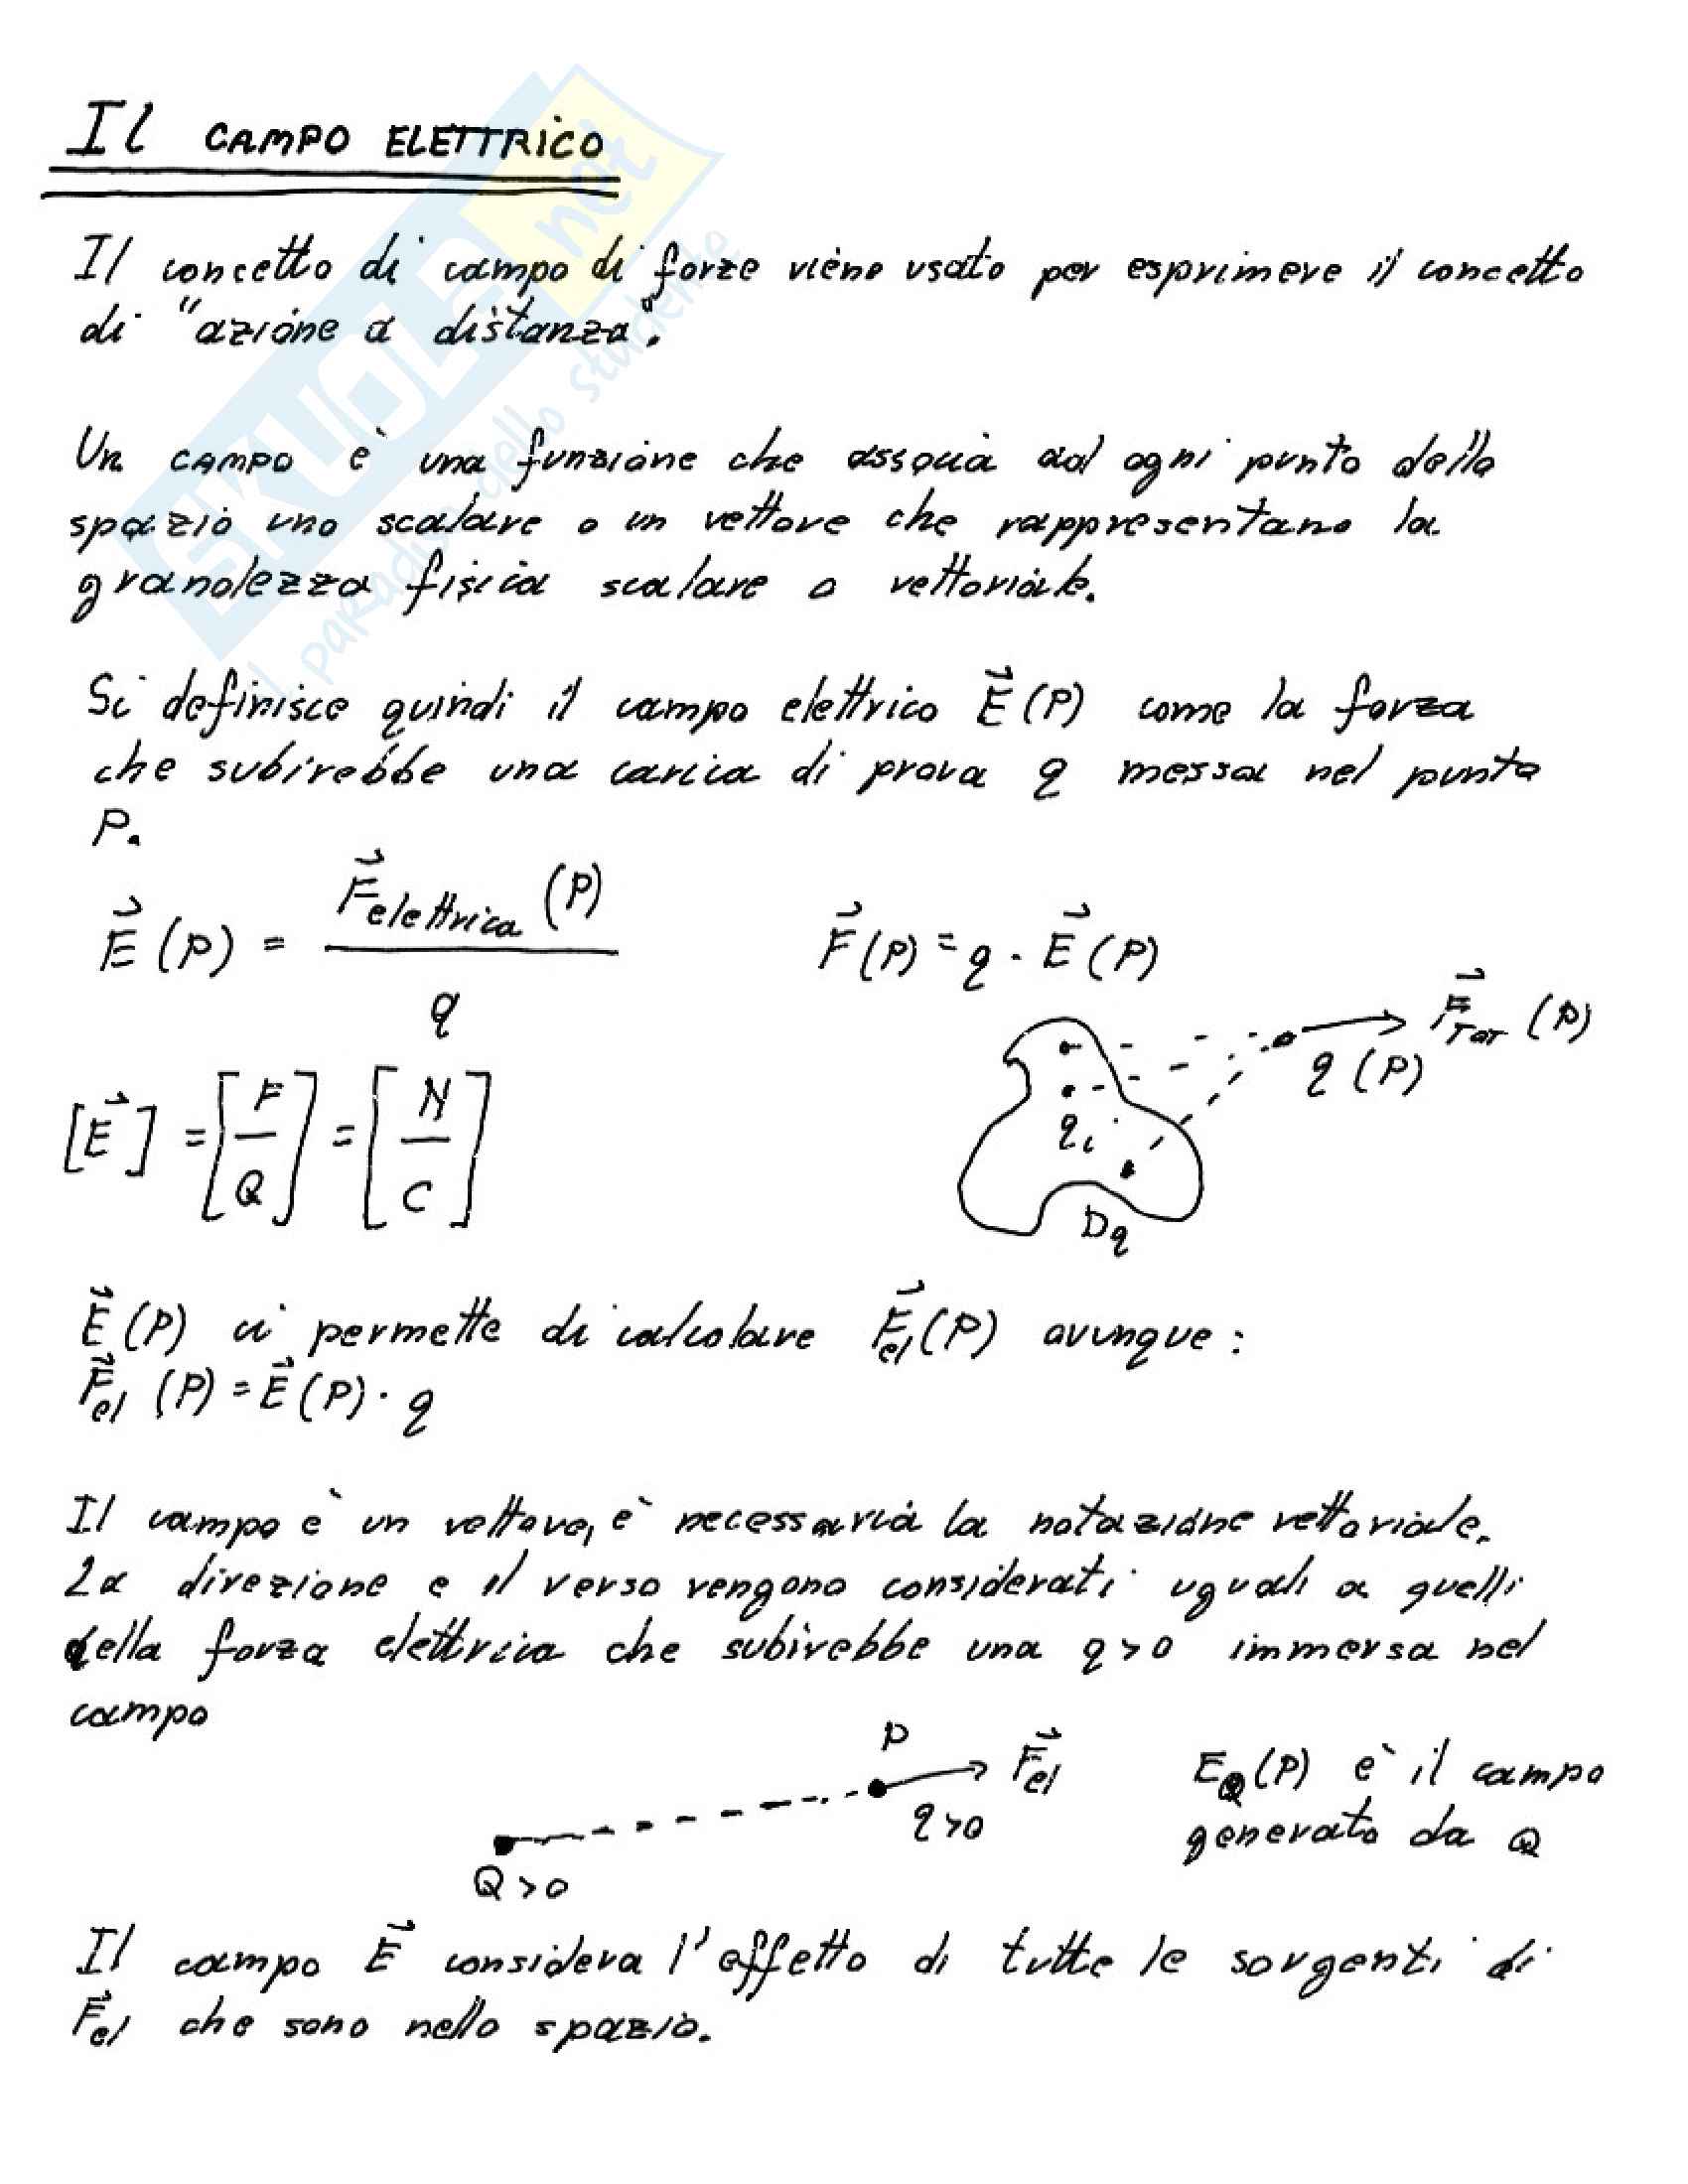 Il CAMPO ELETTRICO
Il concetto di campo di forze viene usato per esprimere il concetto
di "azione a distanza".
Un CAMPO è una funzione che associa ad ogni punto dello
spazio uno scalare o un vettore che rappresentano la
grandezza fisica scalare o vettoriale.
Si definisce quindi il campo elettrico E⃗(P) come la forza
che subirebbe una carica di prova q messa nel punto
P.
E⃗(P) = F⃗elettrica(P) / q
F⃗(P) = q · E⃗(P)
F⃗TOT(P)
q(P)
qi
Dq
[E⃗] = [F/Q] = [N/C]
E⃗(P) ci permette di calcolare F⃗el(P) ovunque:
F⃗el(P) = E⃗(P) · q
Il campo è un vettore, è necessaria la notazione vettoriale.
La direzione e il verso vengono considerati uguali a quelli
della forza elettrica che subirebbe una q>0 immersa nel
campo
P
F⃗el
q>0
Q>0
EQ(P) è il campo
generato da Q
Il campo E⃗ considera l'effetto di tutte le sorgenti di
F⃗el che sono nello spazio.
SKUOLA.net
il paradiso dello studente